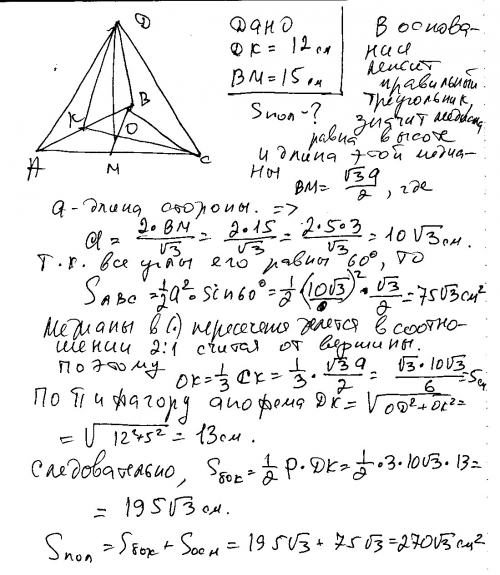 D
K
B
O
A
M
C
Дано
DK = 12 см
BM = 15 см
Sпол - ?
В основа-
нии
лежит
правильный
треугольник,
значит медиана
равна высоте
и длина этой медиа-
ны
BM = √3a/2, где
a - длина стороны. =>
a = 2·BM/√3 = 2·15/√3 = 2·5·3/√3 = 10√3 см.
Т.к. все углы его равны 60°, то
S ABC = 1/2 a²·sin60° = 1/2·(10√3)²·√3/2 = 75√3 см²
Медианы в (·) пересечения делятся в соотно-
шении 2:1 считая от вершины.
Поэтому
OK = 1/3 CK = 1/3·√3a/2 = √3·10√3/6 = 5см
По Пифагору апофема DK = √OD²+OK² =
= √12²+5² = 13 см.
Следовательно, Sбок = 1/2 P·DK = 1/2·3·10√3·13 =
= 195√3 см.
Sпол = Sбок + Sосн = 195√3 + 75√3 = 270√3 см²